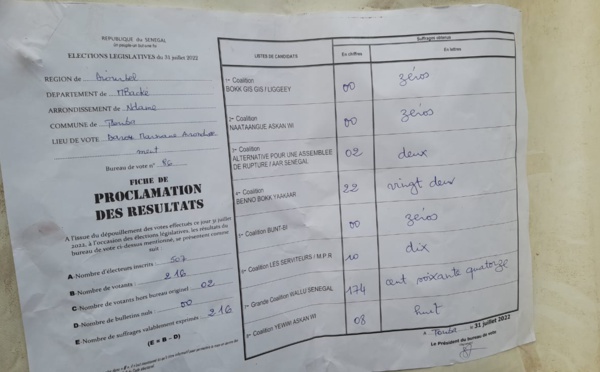 REPUBLIQUE du SENEGAL
Un peuple-un but-une foi
ELECTIONS LEGISLATIVES du 31 juillet 2022
REGION de Diourbel
DEPARTEMENT de MBacké
ARRONDISSEMENT de Ndame
COMMUNE de Touba
LIEU DE VOTE Darou Marnane
ment
Bureau de vote n° 86
FICHE DE
PROCLAMATION
DES RESULTATS
A l'issue du dépouillement des votes effectués ce jour 31 juillet
2022, à l'occasion des élections législatives, les résultats du
bureau de vote ci-dessus mentionné, se présentent comme
suit
A-Nombre d'électeurs inscrits 507
B-Nombre de votants 216
C-Nombre de votants hors bureau original 02
D-Nombre de bulletins nuls 00
E-Nombre de suffrages valablement exprimés 216
(E = B - D)
Suffrages obtenus
LISTES DE CANDIDATS En chiffres En lettres
1ère Coalition
BOKK GIS GIS / LIGGEEY 00 zéros
2ème Coalition
NAATAANGUE ASKAN WI 00 zéros
3ème Coalition
ALTERNATIVE POUR UNE ASSEMBLEE
DE RUPTURE / AAR SENEGAL 02 deux
4ème Coalition
BENNO BOKK YAAKAAR 22 vingt deux
5ème Coalition BUNT-BI 00 zéros
6ème Coalition LES SERVITEURS / M.P.R 10 dix
7ème Grande Coalition WALLU SENEGAL 174 cent soixante quatorze
8ème Coalition YEWWI ASKAN WI 08 huit
A Touba, le 31 juillet 2022
Le Président du bureau de vote